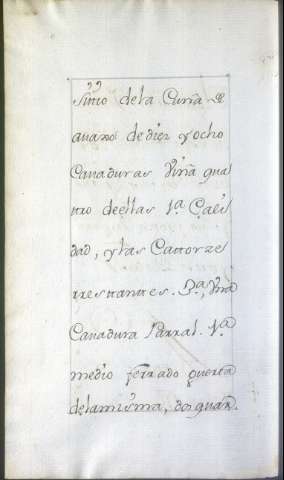 99
Sitio dela Curra &
auaxo de diez y ocho
Cauaduras Viña qua
tro deellas 1.ª Cali
dad, y las Cattorze
rresttanttes. 3.ª, Vna
Cauadura Parral. 1.ª
medio ferrado huerta
delamisma, dos quar.